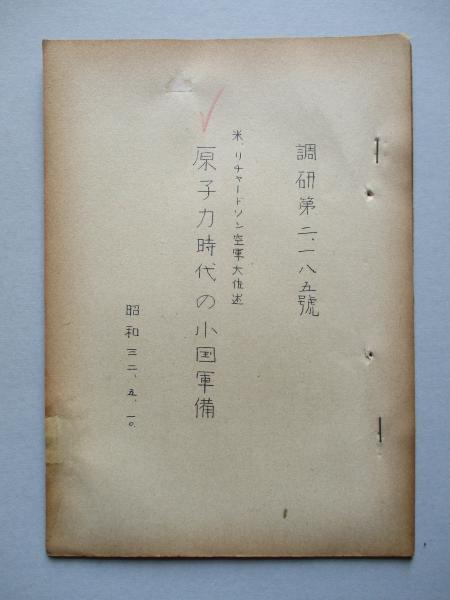 調研第二、一八五號
米、リチャードソン空軍大佐述
原子力時代の小国軍備
昭和三二、五、一〇、